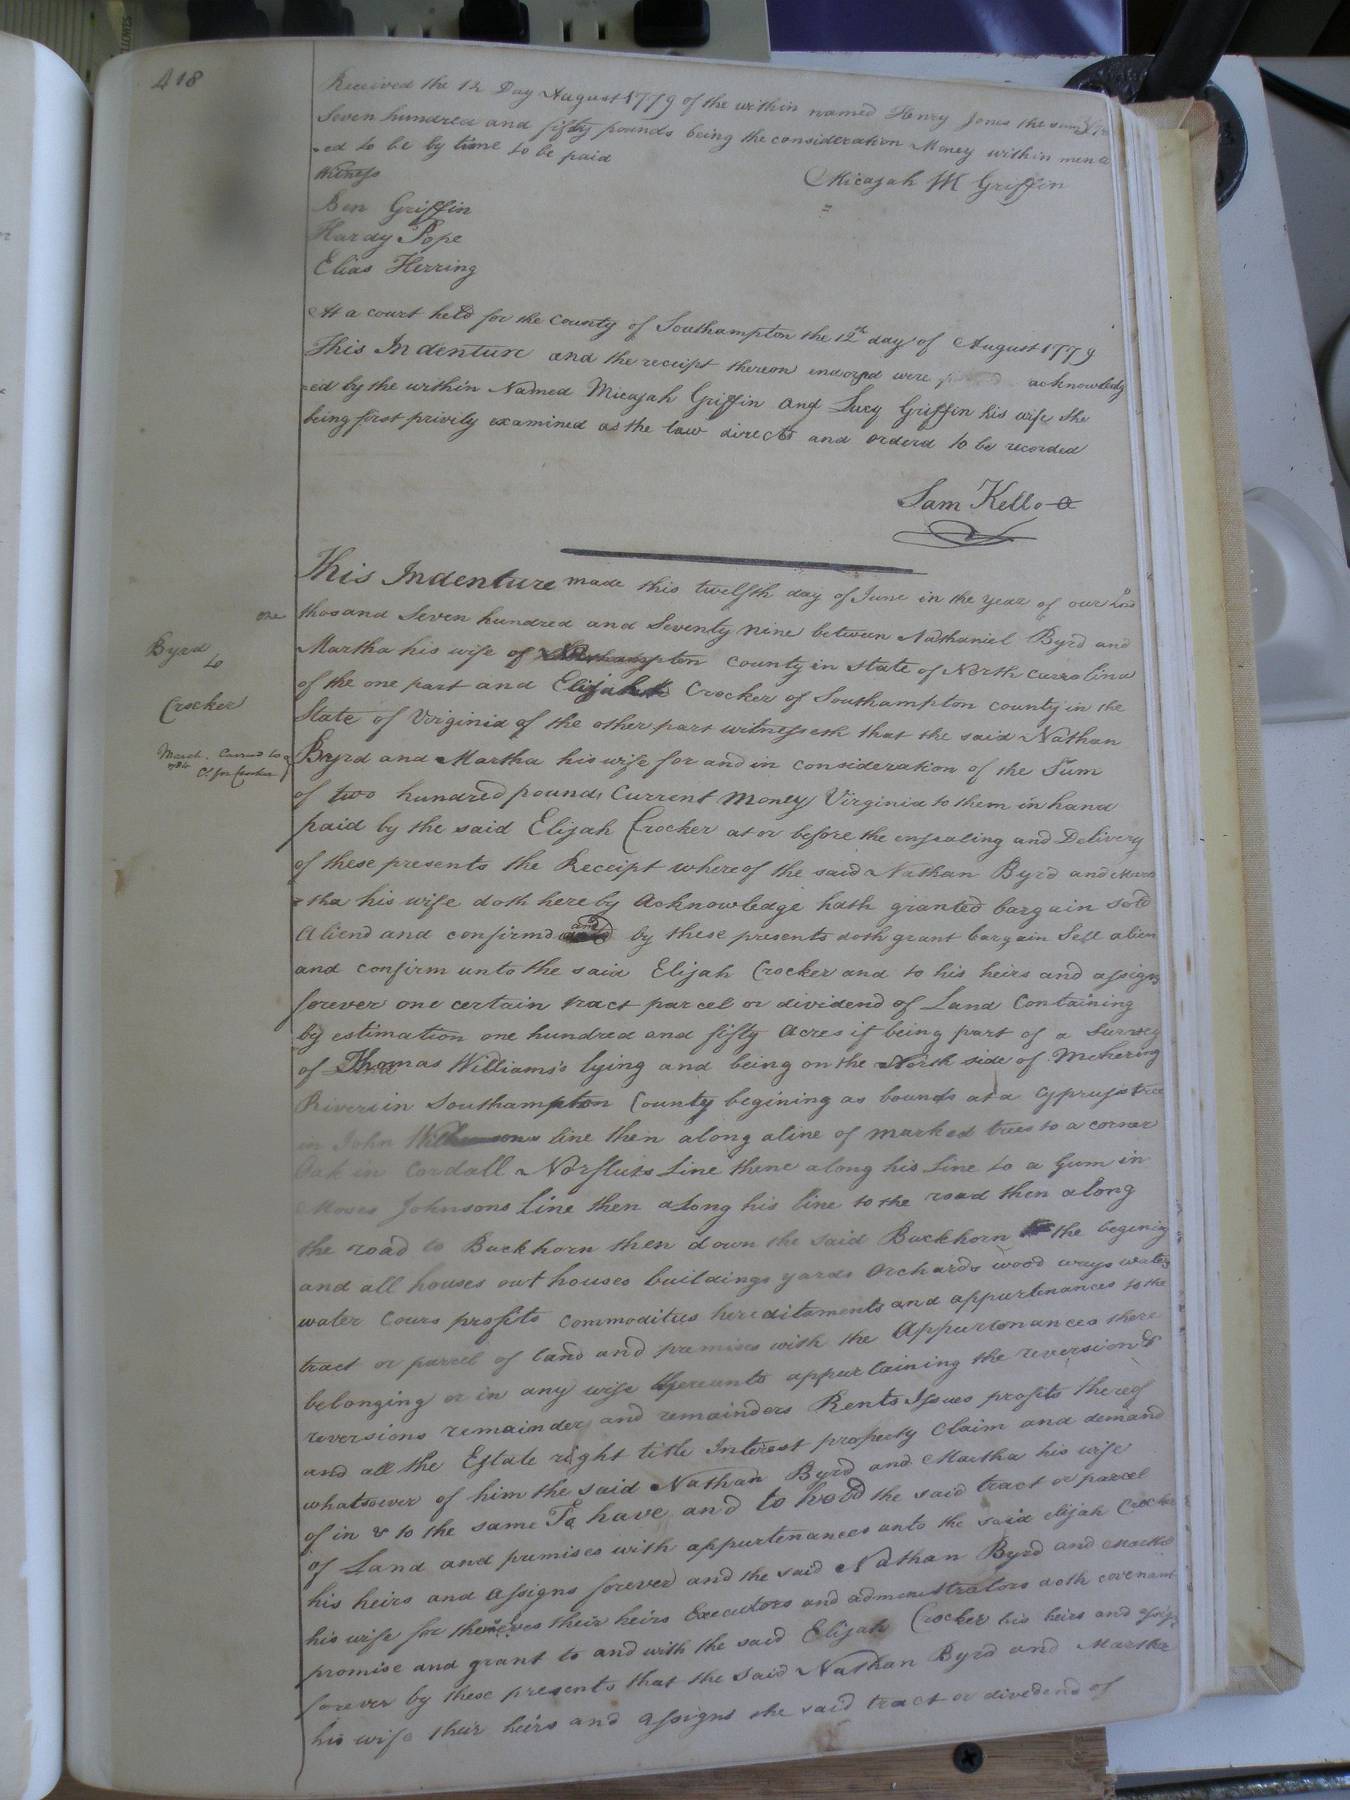 418
Received the 12 Day August 1779 of the within named Henry Jones the sum
Seven hundred and fifty pounds being the consideration Money within men
-ed to be by time to be paid
Witness
Micajah M Griffin
Ben Griffin
Hardy Pope
Elias Herring
At a court held for the County of Southampton the 12th day of August 1779
This Indenture and the receipt thereon endorsed were acknowledg
-ed by the within Named Micajah Griffin and Lucy Griffin his wife she
being first privily examined as the law directs and orderd to be recorded
Sam Kello
This Indenture made this twelfth day of June in the year of our Lord
one thosand Seven hundred and Seventy nine between Nathaniel Byrd and
Byrd
to
Crocker
Martha his wife of county in state of North Carrolina
of the one part and Elijah Crocker of Southampton county in the
State of Virginia of the other part witnesseth that the said Nathan
March
Byrd and Martha his wife for and in consideration of the Sum
of two hundred pounds Current Money Virginia to them in hand
paid by the said Elijah Crocker at or before the ensealing and Delivery
of these presents the Receipt whereof the said Nathan Byrd and Mar
-tha his wife doth hereby Acknowledge hath granted bargain sold
Aliend and confirmd and by these presents doth grant bargain Sell alien
and confirm unto the said Elijah Crocker and to his heirs and assigns
forever one certain tract parcel or dividend of Land Containing
by estimation one hundred and fifty Acres it being part of a Survey
of Thomas Williams's lying and being on the North side of Meherring
River in Southampton County begining as bounds at a Cypruss tree
in John line then along a line of marked trees to a corner
Oak in Cordall Norfluts Line thene along his Line to a Gum in
Moses Johnsons line then along his line to the road then along
the road to Buckhorn then down the said Buckhorn the begening
and all houses out houses buildings yards Orchards wood ways waters
water Cours profits commodities hereditaments and appurtenances to the
tract or parcel of land and premises with the Appurtenances there
belonging or in any wise thereunto appurtaining the reversion &
reversions remainder and remainders Rents Issues profits thereof
and all the Estate right title Interest property Claim and demand
whatsoever of him the said Nathan Byrd and Martha his wife
of in & to the same To have and to hold the said tract or parcel
of Land and premises with appurtenances unto the said elijah Crocker
his heirs and Assigns forever and the said Nathan Byrd and Martha
his wife for themselves their heirs Executors and administrators doth covenant
promise and grant to and with the said Elijah Crocker his heirs and assigns
forever by these presents that the said Nathan Byrd and Martha
his wife their heirs and assigns the said tract or dividend of